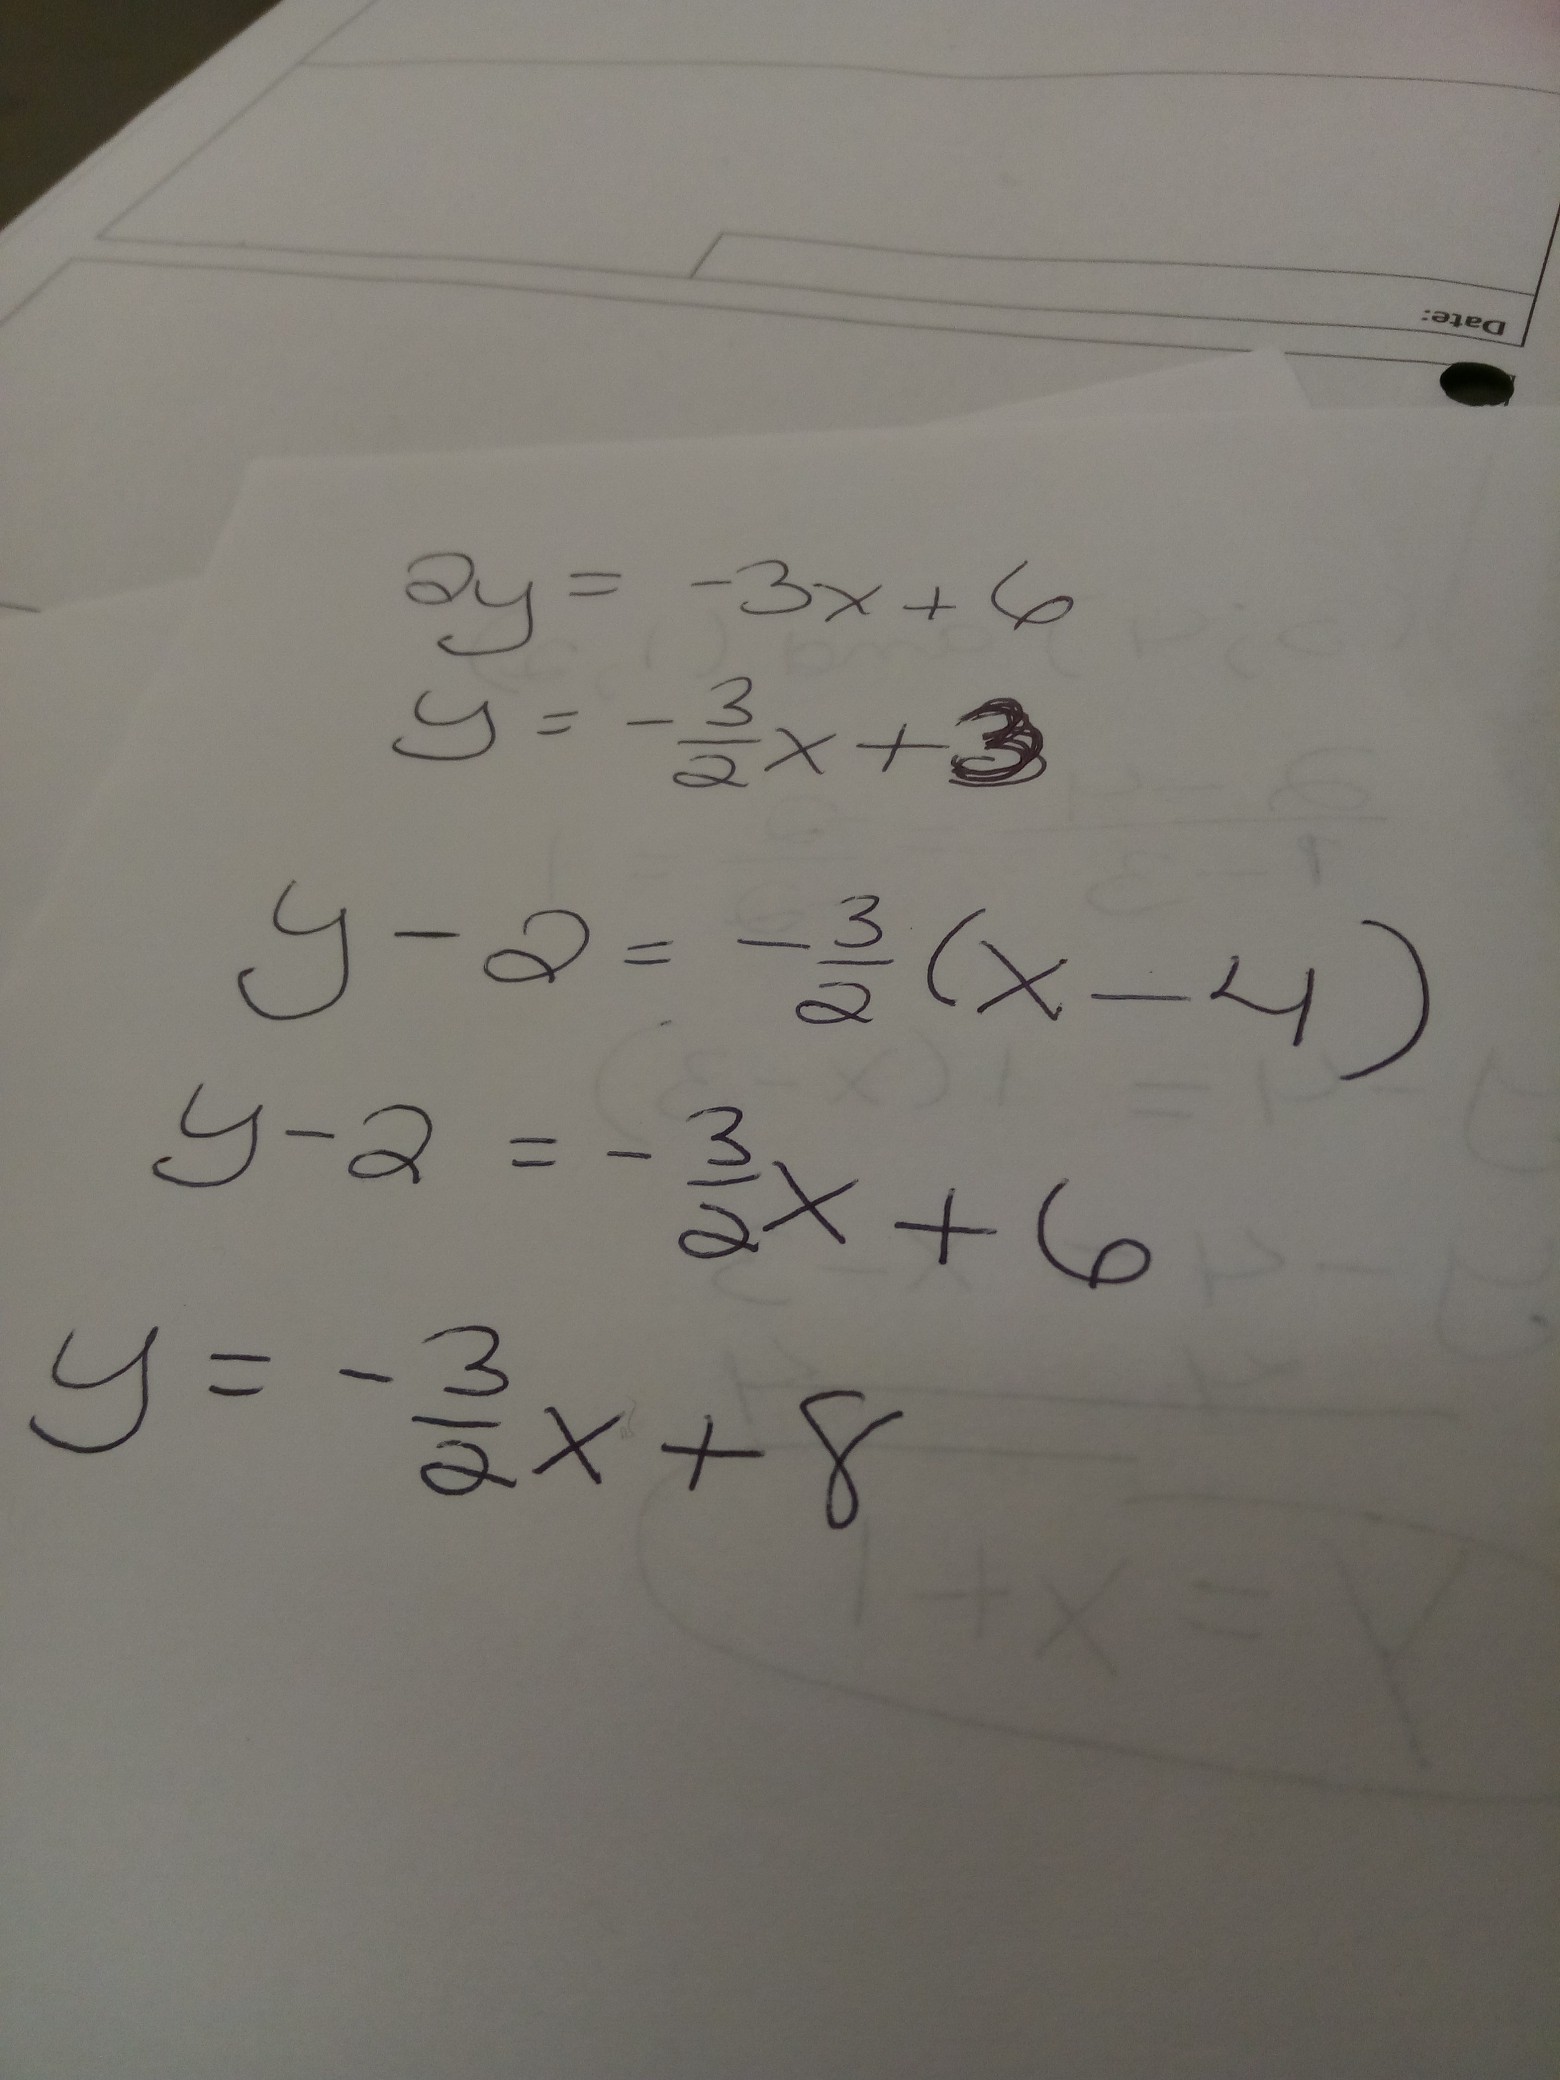 Date:
2y = -3x + 6
y = -3/2 x + 3
y - 2 = -3/2 (x - 4)
y - 2 = -3/2 x + 6
y = -3/2 x + 8
y = x + 1